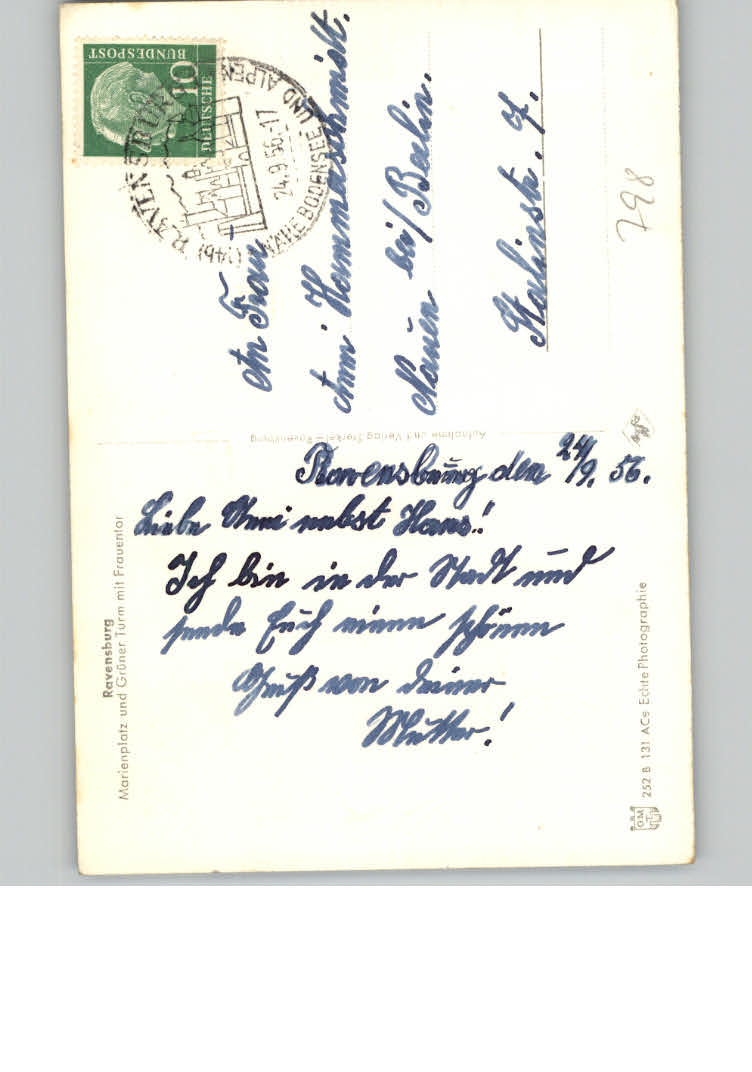 Ravensburg
Marienplatz und Grüner Turm mit Frauentor
Ravensburg den 24/9. 56.
Liebe Anni nebst Hans!
Ich bin in der Stadt und
sende Euch einen schönen
Gruß von deiner
Mutter!
252 B 131 ACs Echte Photographie
Aufnahme und Verlag Ravensburg
DEUTSCHE
BUNDESPOST
10
RAVENSBURG
24.9.56.-17
NÄHE BODENSEE UND ALPEN
An Frau
Anni Hammerschmidt.
Nauen bei/Berlin.
Stalinstr. 9.
798